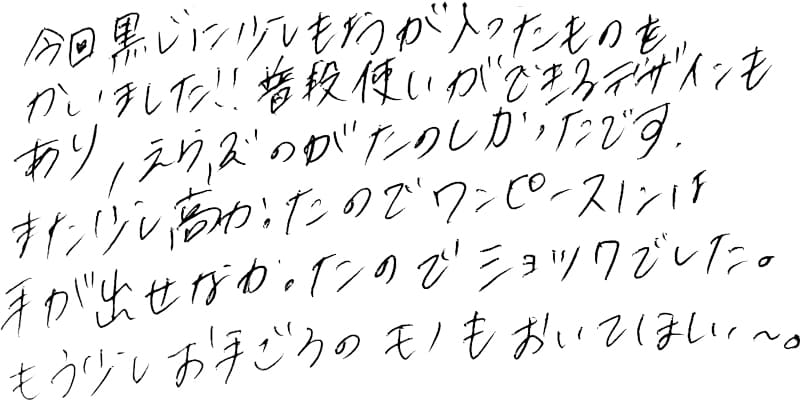 今回黒じに少しもようが入ったものを
かいました!!普段使いができるデザインも
あり,えらぶのがたのしかったです.
また少し高かったのでワンピースには
手が出せなかったのでショックでした。
もう少しお手ごろのモノもおいてほしい〜。